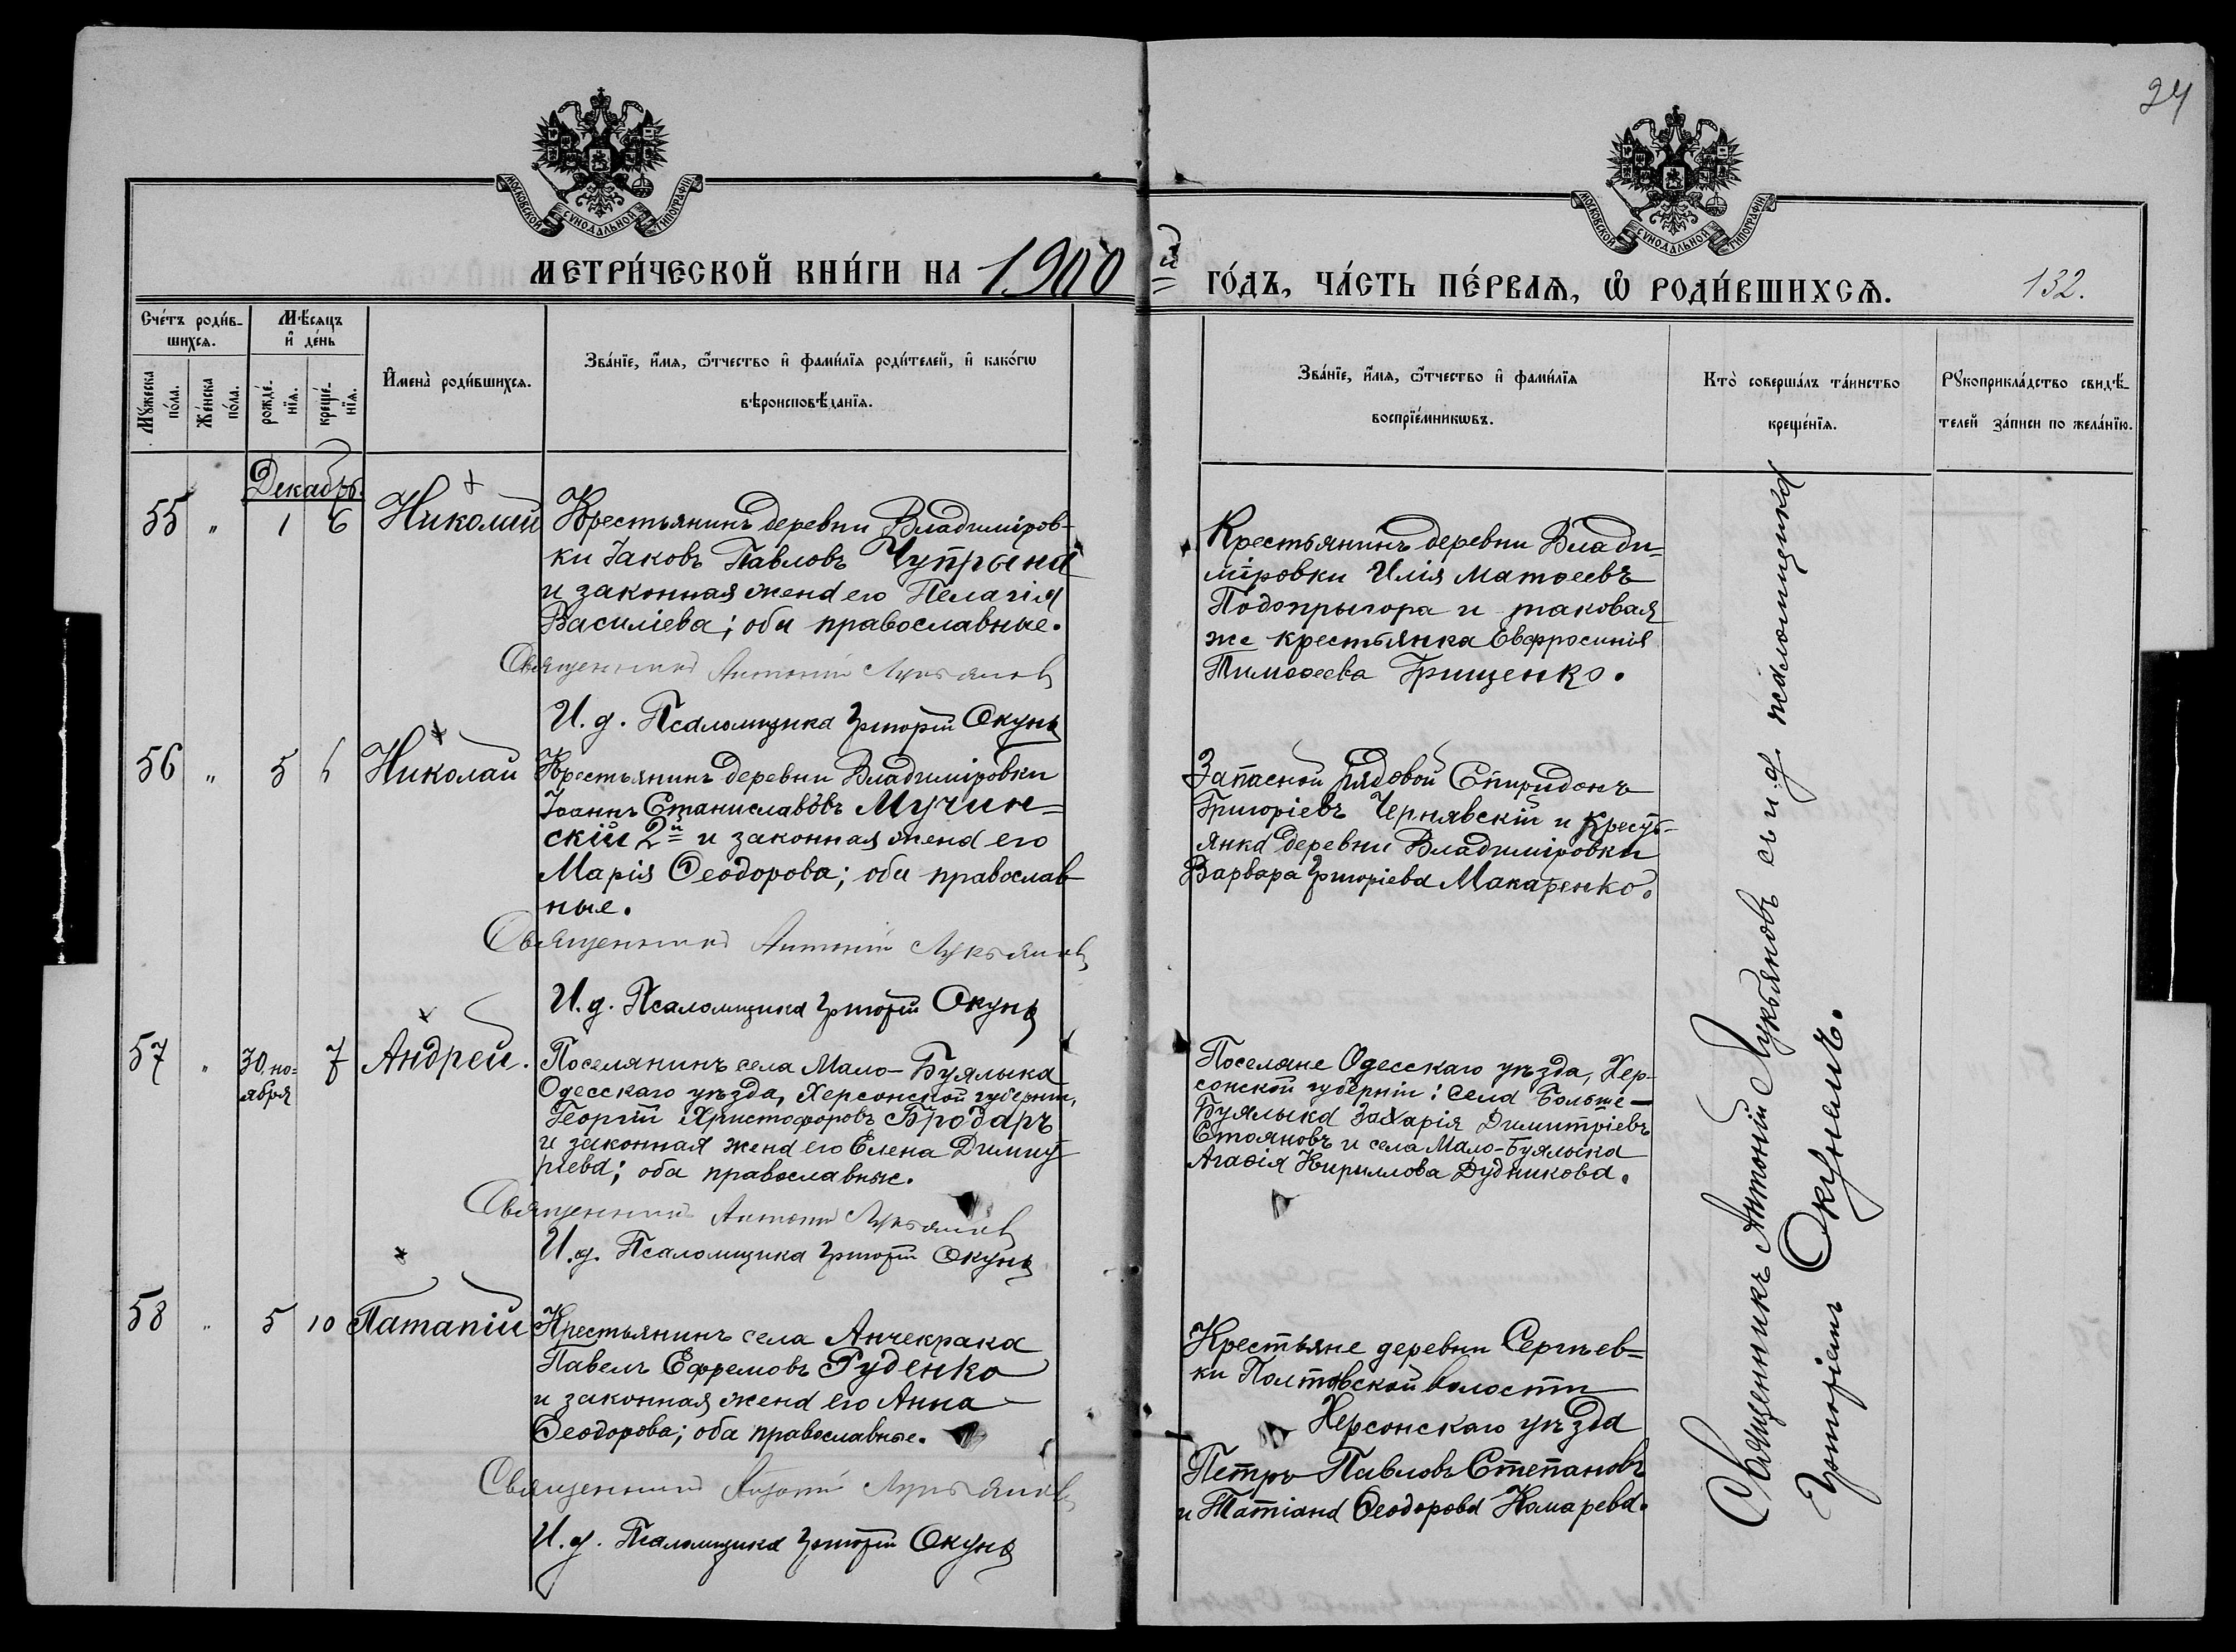 24
МОСКОВСКОЙ СѴНОДАЛЬНОЙ ТИПОГРАФІИ
МОСКОВСКОЙ СѴНОДАЛЬНОЙ ТИПОГРАФІИ
МЕТРИ́ЧЕСКОЙ КНИ́ГИ НА 1900 й ГО́ДЪ, ЧА́СТЬ ПЕ́РВАѦ, Ѡ҆ РОДИ́ВШИХСѦ.
132.
Сче́тъ роди́в-
шихсѧ.
Мѣ́сѧцъ
и҆ де́нь
Мꙋ́жеска
по́ла.
Же́нска
по́ла.
рожде́-
нїѧ.
креще́-
нїѧ.
И҆мена̀ роди́вшихсѧ.
Зва́нїе, и҆́мѧ, ѻ҆́тчество и҆ фами́лїѧ роди́телей, и҆ како́гѡ
вѣроисповѣ́данїѧ.
Зва́нїе, и҆́мѧ, ѻ҆́тчество и҆ фами́лїѧ
воспрїе́мникѡвъ.
Кто̀ соверша́лъ та́инство
креще́нїѧ.
Рꙋкоприкла́дство свидѣ́-
телей за́писи по жела́нїю.
Декабрь.
55 " 1 6 Николай
Крестьянинъ деревни Владиміров-
ки Іаковъ Павловъ Чупрына
и законная жена его Пелагія
Василіева; оба православные.
Священникъ Антоній Лукьяновъ
И. д. Псаломщика Григорій Окунь
Крестьянинъ деревни Влади=
міровки Илія Матѳеевъ
Подопрыгора и таковая
же крестьянка Евфросинія
Тимоѳеева Грищенко.
56 " 5 6 Николай
Крестьянинъ деревни Владиміровки
Іоаннъ Станиславовъ Мучин=
скій 2й и законная жена его
Марія Ѳеодорова; оба православ
ные.
Священникъ Антоній Лукьяновъ
И. д. Псаломщика Григорій Окунь
Запасной рядовой Спиридонъ
Григоріевъ Чернявскій и Кресть-
янка деревни Владиміровки
Варвара Григоріева Макаренко.
57 " 30 но=
ября 7 Андрей.
Поселянинъ села Мало-Буялыка
Одесскаго уѣзда, Херсонской губерніи,
Георгій Христофоровъ Бродаръ
и законная жена его Елена Димит
ріева; оба православные.
Священникъ Антоній Лукьяновъ
И. д. Псаломщика Григорій Окунь
Поселяне Одесскаго уѣзда, Хер-
сонской губерніи: села Больше-
Буялыка Захарія Димитріевъ
Стояновъ и села Мало-Буялыка
Агаѳія Кириллова Дудникова.
58 " 5 10 Патапій
Крестьянинъ села Анчекрака
Павелъ Ефремовъ Руденко
и законная жена его Анна
Ѳеодорова; оба православные.
Священникъ Антоній Лукьяновъ
И. д. Псаломщика Григорій Окунь
Крестьяне деревни Сергѣев=
ки Полтовской волости
Херсонскаго уѣзда
Петръ Павловъ Степановъ
и Татіана Ѳеодорова Комарева.
Священникъ Антоній Лукьяновъ съ и. д. псаломщика
Григоріемъ Окунемъ.